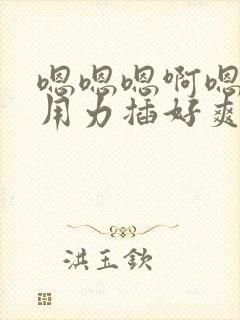 嗯嗯嗯啊嗯
用力插好爽
洪玉钦